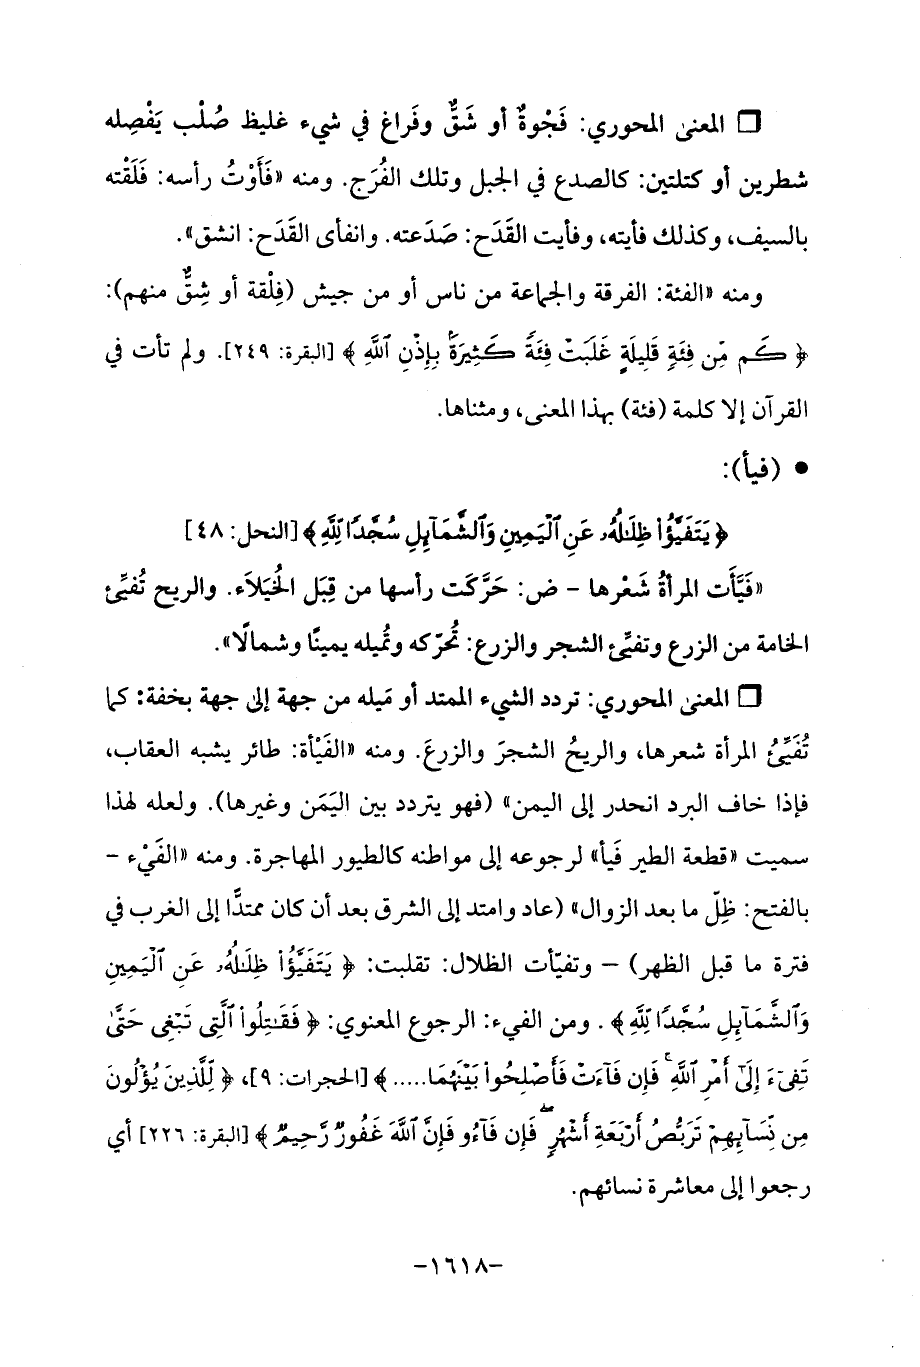 ❒ المعنى المحوري: فَجْوةٌ أو شَقٌّ وفَراغ في شيء غليظ صُلْب يَفْصِله
شطرين أو كتلتين: كالصدع في الجبل وتلك الفُرَج. ومنه «فَأَوْتُ رأسه: فَلَقْته
بالسيف، وكذلك فأيته، وفأيت القَدَح: صَدَعته. وانفأى القَدَح: انشق».
ومنه «الفئة: الفرقة والجماعة من ناس أو من جيش (فِلْقة أو شِقٌّ منهم):
﴿ كَم مِّن فِئَةٍ قَلِيلَةٍ غَلَبَتْ فِئَةً كَثِيرَةً بِإِذْنِ ٱللَّهِ ﴾ [البقرة: ٢٤٩]. ولم تأت في
القرآن إلا كلمة (فئة) بهذا المعنى، ومثناها.
• (فيأ):
﴿ يَتَفَيَّؤُاْ ظِلَـٰلُهُۥ عَنِ ٱلْيَمِينِ وَٱلشَّمَآئِلِ سُجَّدًا لِّلَّهِ ﴾ [النحل: ٤٨]
«فَيَّأَت المرأةُ شَعْرها - ض: حَرَّكَت رأسها من قِبَل الخُيَلاَء. والريح تُفيِّئ
الخامة من الزرع وتفيِّئ الشجر والزرع: تُحرّكه وتُميله يمينًا وشمالًا».
❒ المعنى المحوري: تردد الشيء الممتد أو مَيله من جهة إلى جهة بخفة: كما
تُفَيِّئُ المرأة شعرها، والريحُ الشجرَ والزرعَ. ومنه «الفَيْأة: طائر يشبه العقاب،
فإذا خاف البرد انحدر إلى اليمن» (فهو يتردد بين اليَمَن وغيرها). ولعله لهذا
سميت «قطعة الطير فَيأ» لرجوعه إلى مواطنه كالطيور المهاجرة. ومنه «الفَيْء -
بالفتح: ظِلّ ما بعد الزوال» (عاد وامتد إلى الشرق بعد أن كان ممتدًّا إلى الغرب في
فترة ما قبل الظهر) - وتفيّأت الظلال: تقلبت: ﴿ يَتَفَيَّؤُاْ ظِلَـٰلُهُۥ عَنِ ٱلْيَمِينِ
وَٱلشَّمَآئِلِ سُجَّدًا لِّلَّهِ ﴾. ومن الفيء: الرجوع المعنوي: ﴿ فَقَـٰتِلُواْ ٱلَّتِى تَبْغِى حَتَّىٰ
تَفِىٓءَ إِلَىٰٓ أَمْرِ ٱللَّهِ ۚ فَإِن فَآءَتْ فَأَصْلِحُواْ بَيْنَهُمَا..... ﴾ [الحجرات: ٩]، ﴿ لِّلَّذِينَ يُؤْلُونَ
مِن نِّسَآئِهِمْ تَرَبُّصُ أَرْبَعَةِ أَشْهُرٍ ۖ فَإِن فَآءُو فَإِنَّ ٱللَّهَ غَفُورٌ رَّحِيمٌ ﴾ [البقرة: ٢٢٦] أي
رجعوا إلى معاشرة نسائهم.
-١٦١٨-